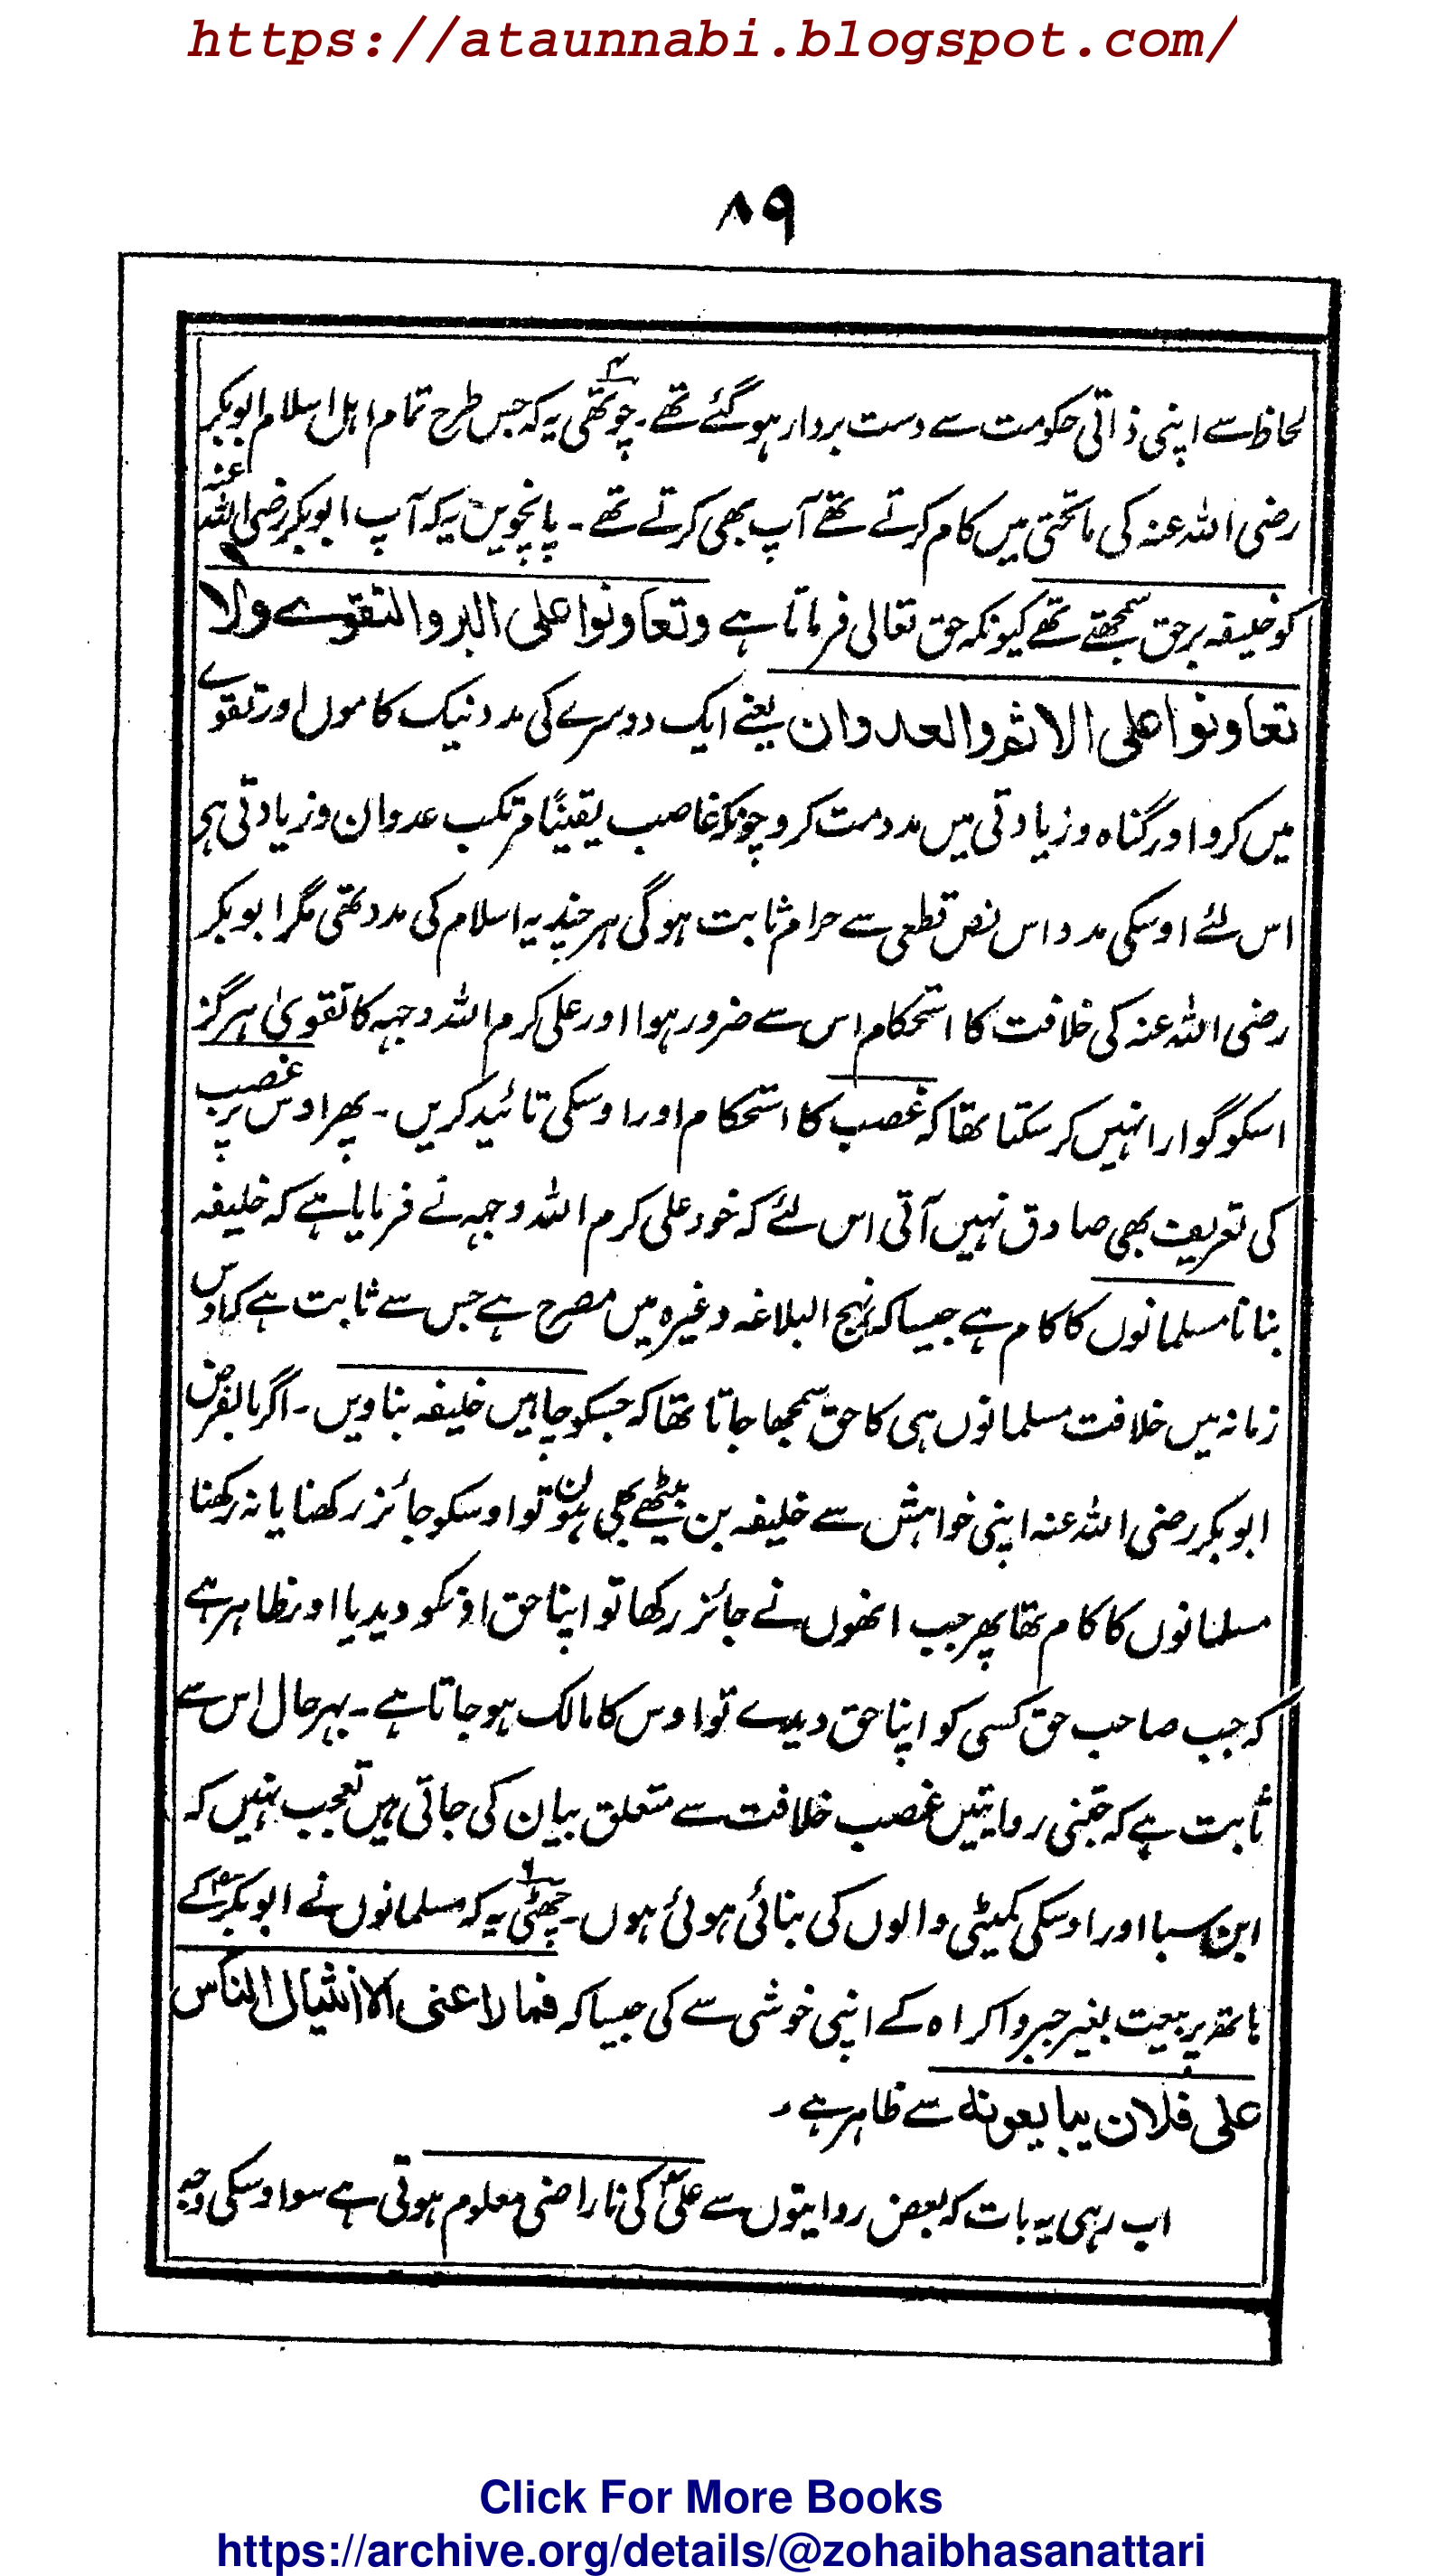 https://ataunnabi.blogspot.com/
۸۹
لحاظ سے اپنی ذاتی حکومت سے دست بردار ہو گئے تھے۔ چوتھی یہ کہ جس طرح تمام اہل اسلام ابوبکر
رضی اللہ عنہ کی ماتحتی میں کام کرتے تھے آپ بھی کرتے تھے۔ پانچویں یہ کہ آپ ابوبکر رضی اللہ عنہ
کو خلیفہ برحق سمجھتے تھے کیونکہ حق تعالی فرماتا ہے وتعاونوا علی البر والتقوے ولا
تعاونوا علی الاثم والعدوان یعنے ایک دوسرے کی مدد نیک کاموں اور تقوے
میں کرو اور گناہ و زیادتی میں مدد مت کرو چونکہ غاصب یقینًا مرتکب عدوان و زیادتی ہی
اس لئے اوسکی مدد اس نص قطعی سے حرام ثابت ہوگی ہرچند یہ اسلام کی مدد تھی مگر ابوبکر
رضی اللہ عنہ کی خلافت کا استحکام اس سے ضرور ہوا اور علی کرم اللہ وجہہ کا تقویٰ ہرگز
اسکو گوارا نہیں کرسکتا تھا کہ غصب کا استحکام اور اوسکی تائید کریں۔ پھر اوس پر غصب
کی تعریف بھی صادق نہیں آتی اس لئے کہ خود علی کرم اللہ وجہہ نے فرمایا ہے کہ خلیفہ
بنانا مسلمانوں کا کام ہے جیسا کہ نہج البلاغہ وغیرہ میں مصرح ہے جس سے ثابت ہے کہ اوس
زمانہ میں خلافت مسلمانوں ہی کا حق سمجھا جاتا تھا کہ جسکو چاہیں خلیفہ بناویں۔ اگر بالفرض
ابوبکر رضی اللہ عنہ اپنی خواہش سے خلیفہ بن بیٹھے بھی ہوں تو اوسکو جائز رکھنا یا نہ رکھنا
مسلمانوں کا کام تھا پھر جب انھوں نے جائز رکھا تو اپنا حق اونکو دیدیا اور ظاہر ہے
کہ جب صاحب حق کسی کو اپنا حق دیدے تو اوس کا مالک ہو جاتا ہے۔ بہرحال اس سے
ثابت ہے کہ جتنی روایتیں غصب خلافت سے متعلق بیان کی جاتی ہیں تعجب نہیں کہ
ابن سبا اور اوسکی کمیٹی والوں کی بنائی ہوئی ہوں۔ چھٹی یہ کہ مسلمانوں نے ابوبکرؓ کے
ہاتھ پر بیعت بغیر جبر و اکراہ کے اپنی خوشی سے کی جیسا کہ فما راعنی الا انثیال الناس
علی فلان یبایعونه سے ظاہر ہے۔
اب رہی یہ بات کہ بعض روایتوں سے علیؓ کی ناراضی معلوم ہوتی ہے سو اوسکی وجہ
Click For More Books
https://archive.org/details/@zohaibhasanattari